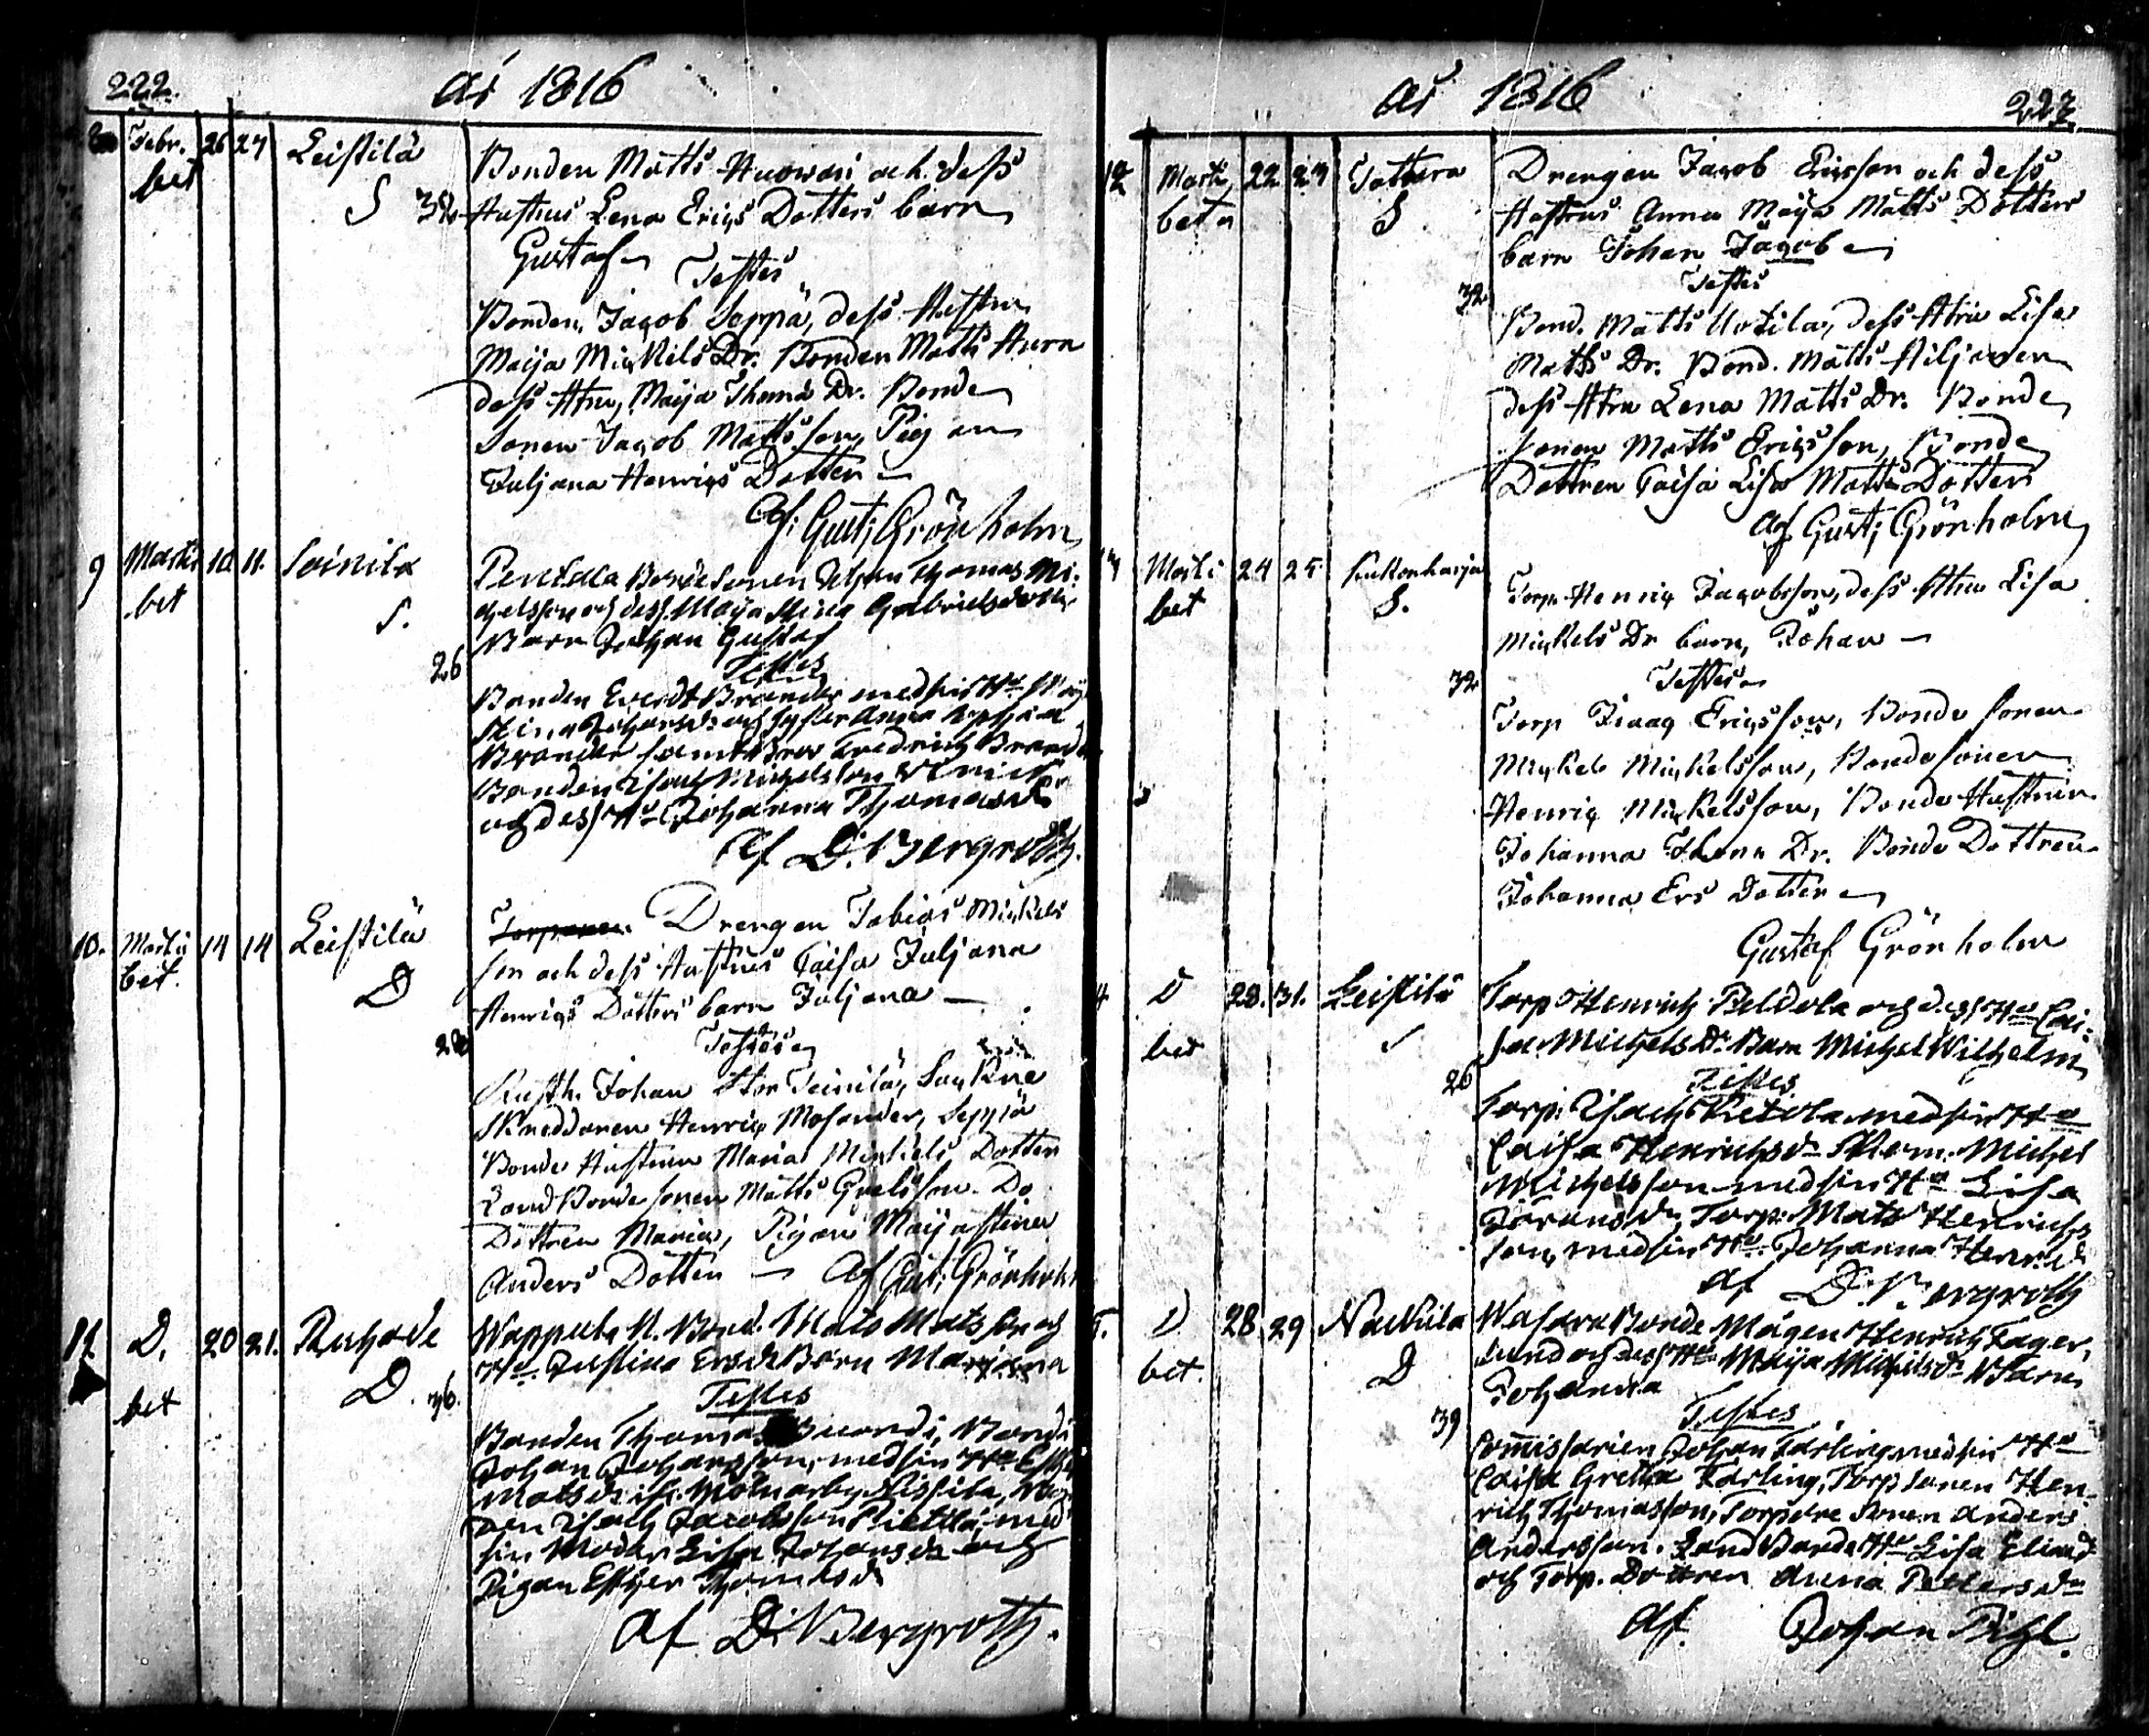 222.
år 1816
Febr. 26 27 Leistilä
bet
S
32
Bonden Matts Huowari och dess
Hustrus Lena Erics Dotters barn
Gustaf
Testes
Bonden, Jacob Seppä, dess Hustru
Maija Mickels Dr. Bonden Matts Hura
dess Hru, Maija Thoma Dr. Bonde
Sonen Jacob Mattsson, Pigan
Juljana Henrics Dotter
Af: Gust; Grönholm
9 Martii 10 11. Soinila
bet
S.
26
Bonde Sonen Johan Thomas Mi-
chelsson och dess Maja Stina Gabrielsdotter
Barn Johan Gustaf
Testes
Bonden Everdt Brander med sin Hu Maja
Stina och Syster Anna
Brander samt Bror Fredrich Brander
Bonden Isach Michelsson
och dess Hu Johanna Thomasd.
Af D. Bergroth.
10. Martii 14 14 Leistilä
bet.
D
Torparen Drengen Tobias Mickels
son och dess Hustrus Caisa Juljana
Henrics Dotters barn Juljana
Testes
Rusth. Johan Stor Teinilä, Sockne
Skreddaren Henric Mosander, Seppä
Bonde Hustrun Maria Mickels Dotter
Land Bonde Sonen Matts Grelsson Do
Dottren Maria, Pigan Maija Stina
Anders Dotter Af Gust; Grönholm
11 D. 20 21. Ruhade
bet
D. 36.
N. Bond. Mats Matsson och
Hu. Justina Ersd. Barn Marjana
Testes
Bonden Thomas Bonden
Johan Johansson, med sin Hu
Matsd.
Isach Jacobsson med
sin Moder Lisa Johansd. och
Pigan Esther Thomasd.
Af D. Bergroth.
år 1816
223
12 Martii 22 24 Tattara
bet
S
32
Drengen Jacob Ericson och dess
Hustrus Anna Maja Matts Dotters
barn Johan Jacob
Testes
Bond. Matts Uotila, dess Hru Lisa
Matts Dr. Bond. Matts Hiljanen
dess Hru Lena Matts Dr. Bonde
Sonen Matts Ericsson, Bonde
Dottren Caisa Lisa Matts Dotter
Af Gust; Grönholm
Martii 24 25 Kukonharja
bet
S.
32
Torp. Henric Jacobsson, dess Hru Lisa
Mickels Dr barn, Johan
Testes
Torp Isaac Ericsson, Bonde Sonen
Mickel Mickelsson, Bonde Sonen
Henric Mickelsson, Bonde Hustrun
Johanna Thoma Dr. Bonde Dottren
Johanna Ers Dotter
Gustaf Grönholm
D 28. 31. Leistilä
bet
26
Torp Henrich Peldola och dess Hu Cai-
sa Michels Dr Barn Michel Wilhelm
Testes
Torp: Isach Ketola med sin Hu
Caisa Henrichsdr Michel
Michelsson med sin Hu Lisa
Torp. Mats Henrichs
son, med sin Hu Johanna Henricd.
af D. Bergroth
D 28 29 Nackila
bet.
D
39
Wasara Bonde Mågen Henrich Fager-
lund och dess Hu Maija Michelsdr Barn
Johanna
Testes
Commissarien Johan Färling med sin Hu
Caisa Gretha Färling, Torp Sonen Hen-
rich Thomasson, Torpare Sonen Anders
Andersson. Land Bonde Hu Lisa Eliaed
och Torp. Dottren Anna Pettersdr
Af. Johan Pihl.